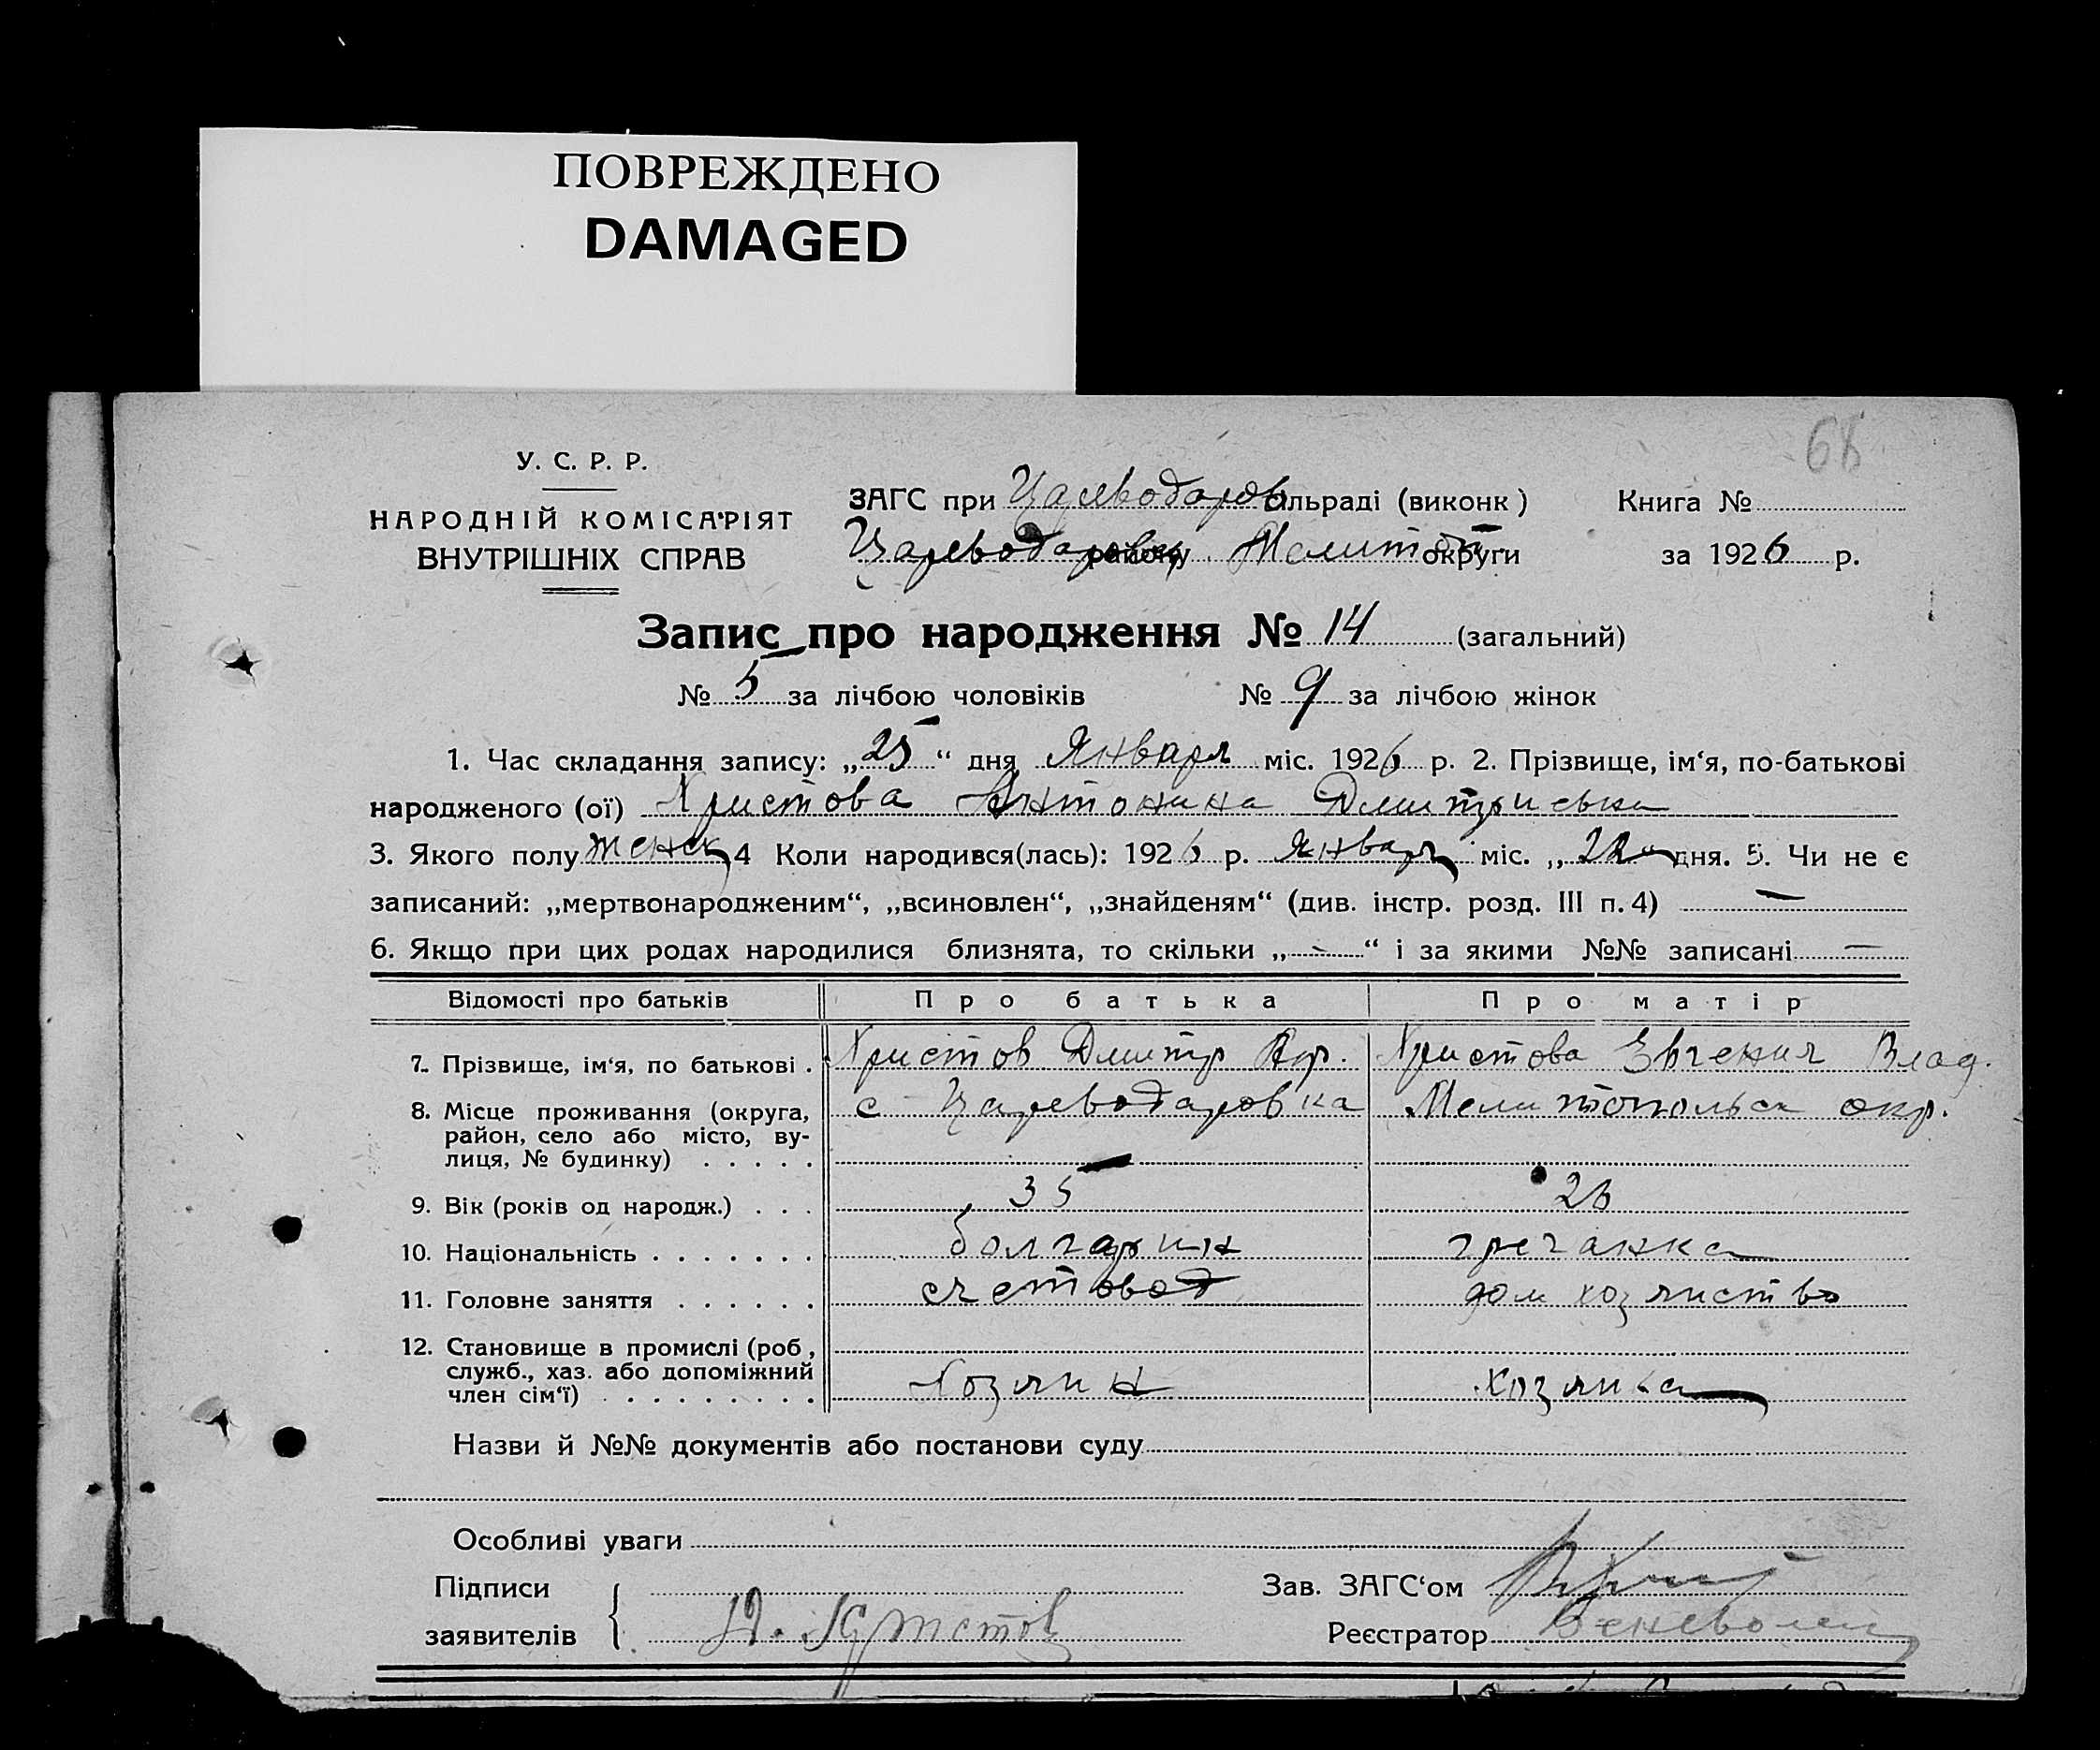 ПОВРЕЖДЕНО
DAMAGED
66
У. С. Р. Р.
НАРОДНІЙ КОМІСА'РІЯТ
ВНУТРІШНІХ СПРАВ
ЗАГС при Цареводаров сільраді (виконк) Книга №
Цареводаров району Мелитоп округи за 1926 р.
Запис про народження № 14 (загальний)
№ 5 за лічбою чоловіків № 9 за лічбою жінок
1. Час складання запису: „25“ дня Января міс. 1926 р. 2. Прізвище, ім‘я, по-батькові
народженого (ої) Христова Антонина Дмитриевна
3. Якого полу женск 4 Коли народився(лась): 1926 р. январ міс. „22“ дня. 5. Чи не є
записаний: „мертвонародженим“, „всиновлен“, „знайденям“ (див. інстр. розд. III п. 4) —
6. Якщо при цих родах народилися близнята, то скільки „-“ і за якими №№ записані —
Відомості про батьків Про батька Про матір
7. Прізвище, ім‘я, по батькові . Христов Дмитр Христова Евгения Влад.
8. Місце проживання (округа, с Цареводаровка Мелитопольск окр.
район, село або місто, ву-
лиця, № будинку) . . . . .
9. Вік (років од народж.) . . . 35 26
10. Національність . . . . . . . болгарин гречанка
11. Головне заняття . . . . . . счетовод дом хозяиство
12. Становище в промислі (роб,
служб., хаз. або допоміжний
член сім‘ї) . . . . . . . . . Хозяин хозяика
Назви й №№ документів або постанови суду
Особливі уваги
Підписи Зав. ЗАГС‘ом
заявителів Д. Христов Реєстратор